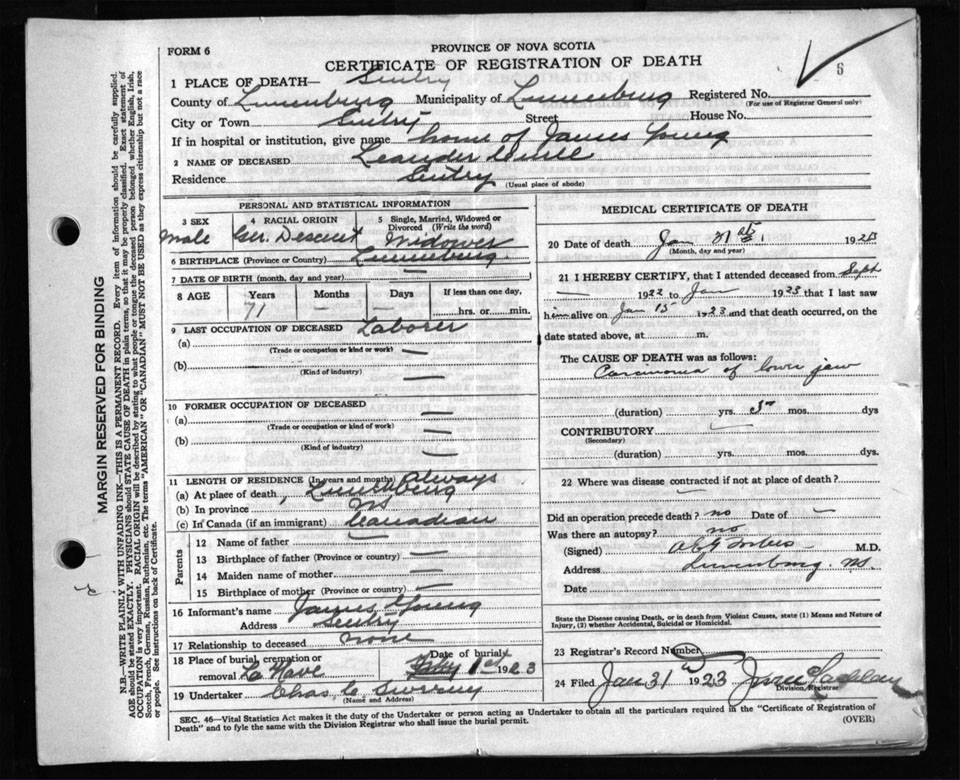 FORM 6
PROVINCE OF NOVA SCOTIA
CERTIFICATE OF REGISTRATION OF DEATH
5
1 PLACE OF DEATH—
County of Lunenburg Municipality of Lunenburg Registered No.
(For use of Registrar General only)
City or Town Street House No.
If in hospital or institution, give name home of James Young
2 NAME OF DECEASED Leander
Residence
(Usual place of abode)
PERSONAL AND STATISTICAL INFORMATION
3 SEX Male
4 RACIAL ORIGIN Ger. Descent
5 Single, Married, Widowed or Divorced (Write the word) Widower
6 BIRTHPLACE (Province or Country) Lunenburg
7 DATE OF BIRTH (month, day and year) —
8 AGE Years Months Days If less than one day,
71 — — hrs. or min.
9 LAST OCCUPATION OF DECEASED Laborer
(a) —
(Trade or occupation or kind or work)
(b) —
(Kind of industry)
10 FORMER OCCUPATION OF DECEASED
(a) —
(Trade or occupation or kind of work)
(b) —
(Kind of industry)
11 LENGTH OF RESIDENCE (In years and months) Always
(a) At place of death, Lunenburg
(b) In province NS
(c) In Canada (if an immigrant) Canadian
Parents
12 Name of father —
13 Birthplace of father (Province or country) —
14 Maiden name of mother —
15 Birthplace of mother (Province or country) —
16 Informant's name James Young
Address
17 Relationship to deceased none
18 Place of burial, cremation or removal La Have
Date of burial 1st 1923
19 Undertaker Chas. C.
(Name and Address)
MEDICAL CERTIFICATE OF DEATH
20 Date of death Jan 31st 192
(Month, day and year)
21 I HEREBY CERTIFY, that I attended deceased from Sept
1922 to Jan 1923 that I last saw
him alive on Jan 15 1923 and that death occurred, on
date stated above, at m.
The CAUSE OF DEATH was as follows:
Carcinoma of lower jaw
(duration) yrs. mos. dys
CONTRIBUTORY —
(Secondary)
(duration) yrs. mos. dys.
22 Where was disease contracted if not at place of death?
—
Did an operation precede death? no Date of —
Was there an autopsy? no
(Signed) M.D.
Address Lunenburg. NS.
Date
State the Disease causing Death, or in death from Violent Causes, state (1) Means and Nature of Injury, (2) whether Accidental, Suicidal or Homicidal.
23 Registrar's Record Number
24 Filed Jan 31 1923
Division Registrar
SEC. 46—Vital Statistics Act makes it the duty of the Undertaker or person acting as Undertaker to obtain all the particulars required in the "Certificate of Registration of
Death" and to fyle the same with the Division Registrar who shall issue the burial permit. (OVER)
MARGIN RESERVED FOR BINDING
N.B.—WRITE PLAINLY WITH UNFADING INK—THIS IS A PERMANENT RECORD. Every item of information should be carefully supplied.
AGE should be stated EXACTLY. PHYSICIANS should STATE CAUSE OF DEATH in plain terms, so that it may be properly classified. Exact statement of
OCCUPATION is very important. RACIAL ORIGIN will be described by stating to what people or tongue the deceased person belonged whether English, Irish,
Scotch, French, German, Russian, Ruthenian, etc. The terms "AMERICAN" OR "CANADIAN" MUST NOT BE USED as they express citizenship but not a race
or people. See instructions on back of Certificate.